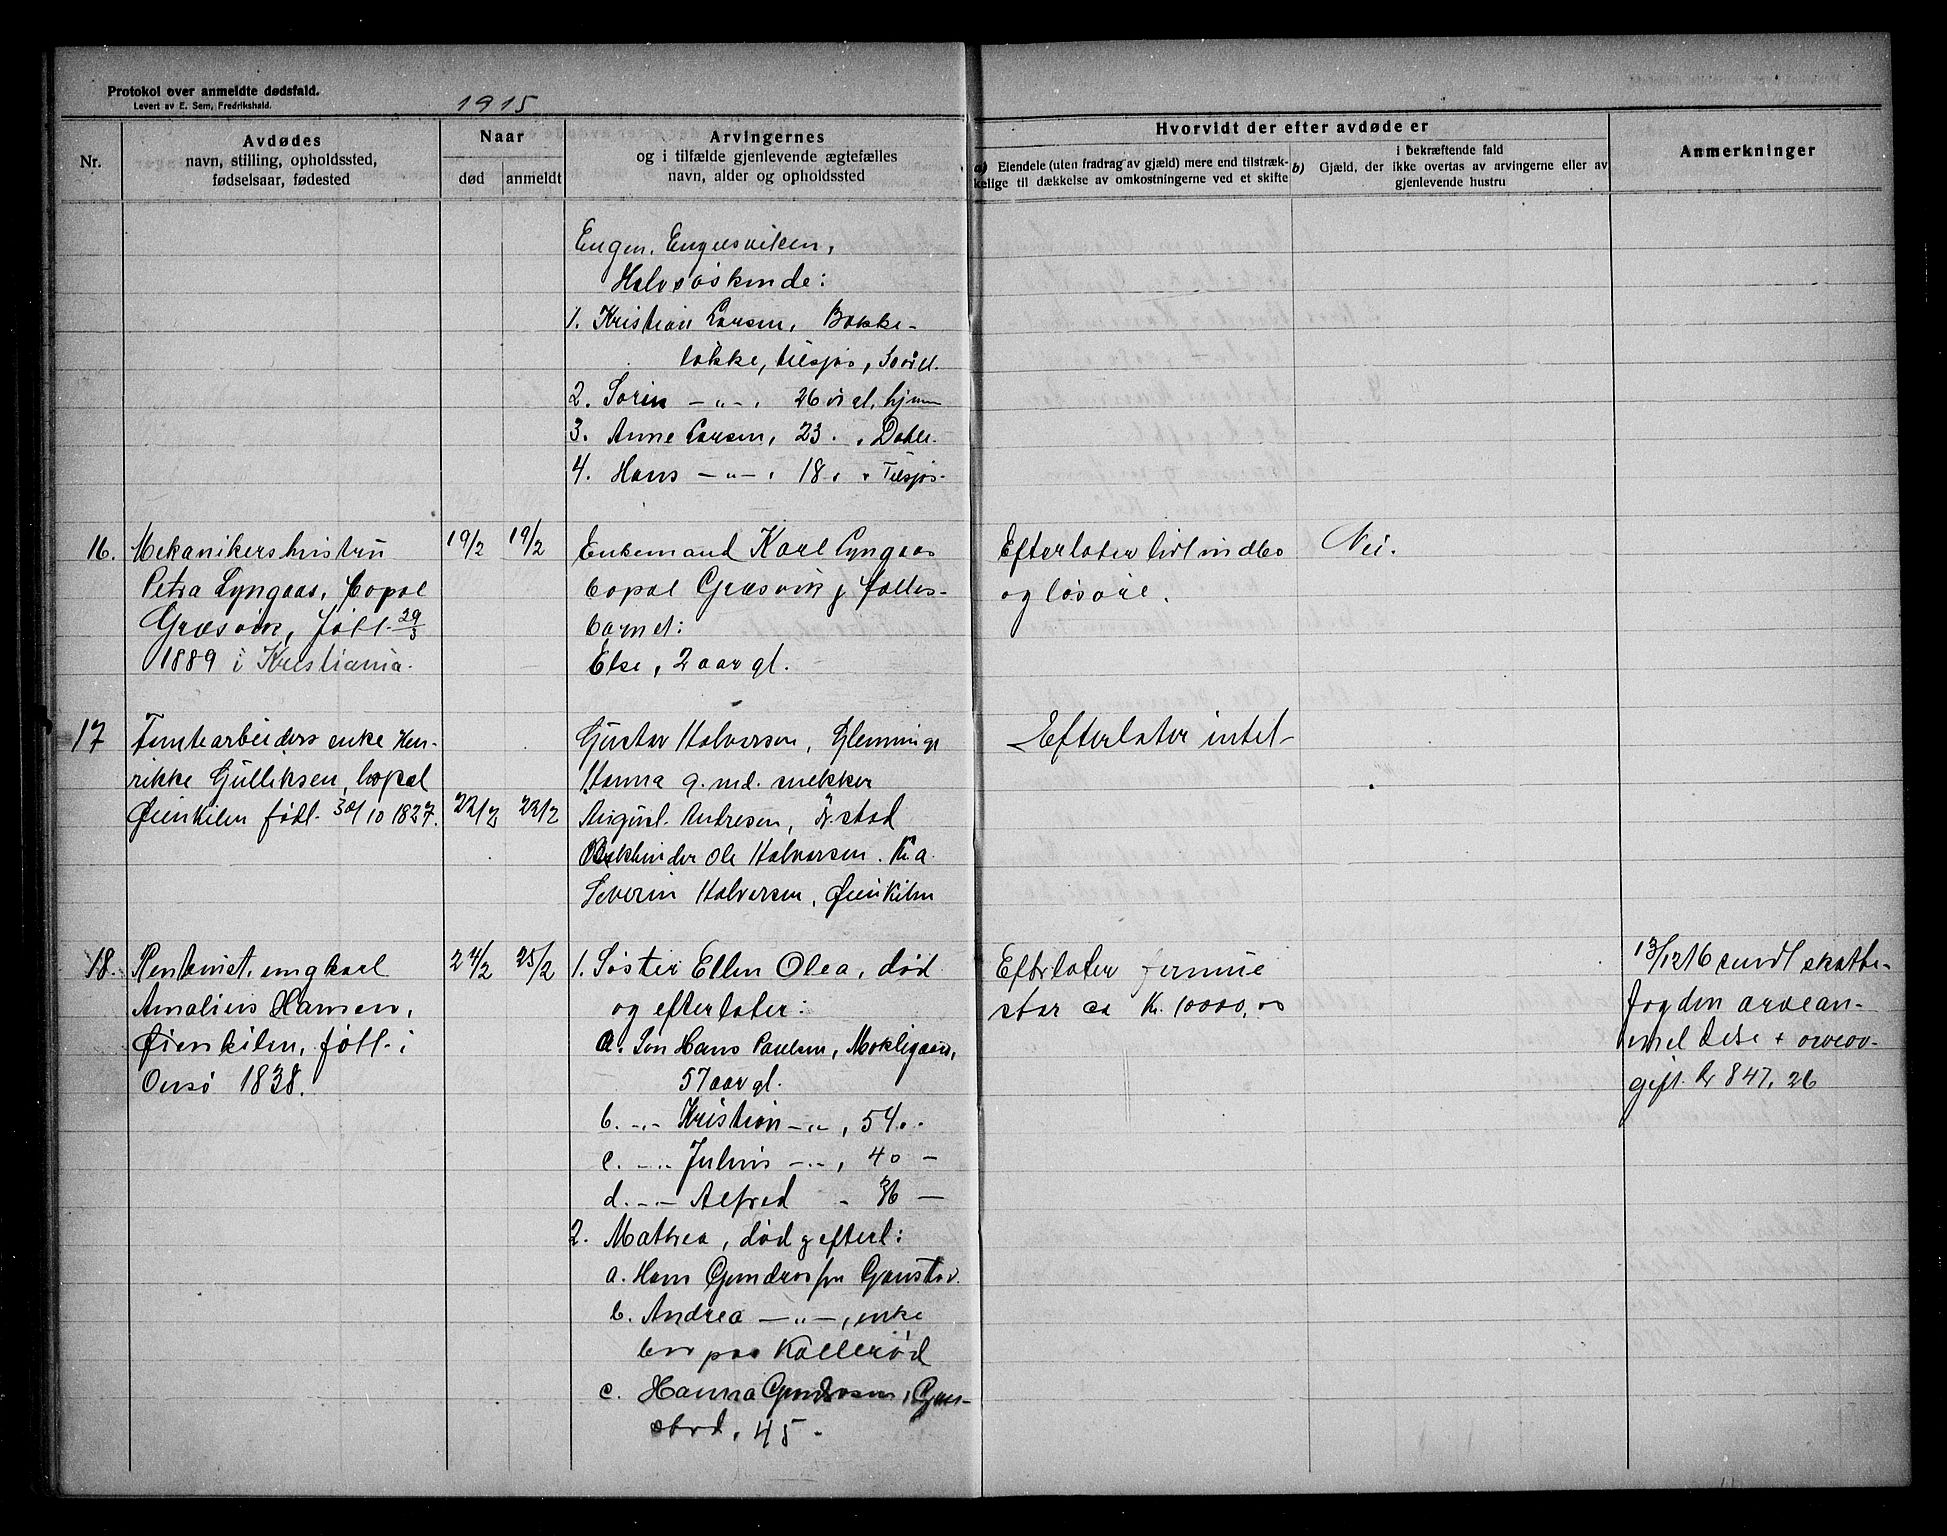 Protokol over anmeldte dødsfald.
Levert av E. Sem, Fredrikshald.
1915
Nr.
Avdødes
navn, stilling, opholdssted,
fødselsaar, fødested
Naar
død
anmeldt
Arvingernes
og i tilfælde gjenlevende ægtefælles
navn, alder og opholdssted
Hvorvidt der efter avdøde er
a) Eiendele (uten fradrag av gjæld) mere end tilstræk-
kelige til dækkelse av omkostningerne ved et skifte
i bekræftende fald
b) Gjæld, der ikke overtas av arvingerne eller av
gjenlevende hustru
Anmerkninger
Eugen, Engelsviken,
Halvsøskende:
1. Kristian Larsen, Bakke-
løkke,
2. Sorin - „ - , 26 , hjem
3. Anne Larsen, 23 . ,
4. Hans - „ - , 18 . „
16.
Mekanikershustru
Petra Lyngaas, bopæl
Græsvik, født 29/3
1889 i Kristiania.
19/2
19/2
Enkemand Karl Lyngaas
bopæl Græsvik g fælles-
barnet:
Else, 2 aar gl.
Efterlater litt indbo
og løsøre.
Nei.
17
Tomtearbeiders enke Hen-
rikke Gulliksen, bopæl
Øienkilen født 30/10 1827.
22/2
22/2
Gustav Halvorsen, Glemminge
Hanna g. md. snekker
August Andresen, Fr.stad
Bokbinder Ole Halvorsen. Kr.a.
Severin Halvorsen, Øienkilen
Efterlater intet
18.
Rentenist, ungkarl
Amalius Hansen,
Øienkilen, født i
Onsø 1838.
24/2
25/2
1. Søster Ellen Olea, død
og efterlater:
a. Søn Hans Paulsen, Moklegaard,
57 aar gl.
b. -„- Kristian -„- , 54 „ -
c. -„- Julius -„- , 40 -
d. -„- Alfred „ 36 -
2. Mathea, død g efterl:
a. Hans Gundersen Gaustad
b. Andrea - „ - , enke
bor paa Kallerød
c. Hanna Gundersen, Gau-
stad, 45 -
Efterlater formue
stor ca Kr. 10000,00
13/12 16 sendt skatte-
fogden arvean-
meldelse + arveav-
gift kr 847,26